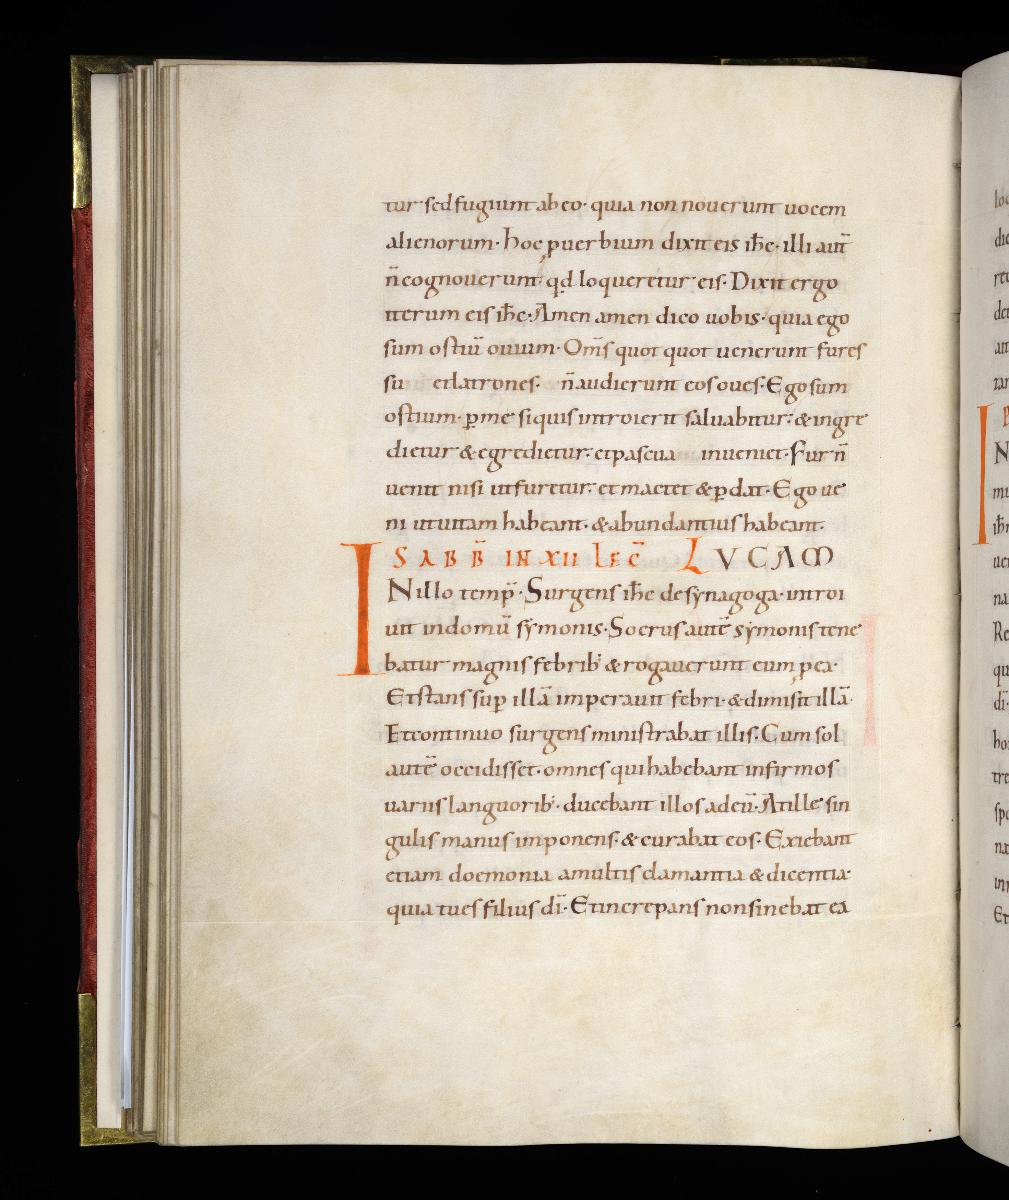 tur sed fugiunt ab eo· quia non noverunt uocem
alienorum· hoc ꝓuerbium dixit eis ih̅c· illi aut̅
n̅ cognouerunt· qd̅ loqueretur eis· Dixit ergo
iterum eis ih̅c· Amen amen dico uobis· quia ego
sum ostiu̅ ouium· Om̅s quot quot uenerunt fures
su et latrones· n̅ audierunt eos oues· Ego sum
ostium· ꝑ me siquis introierit saluabitur· & ingre
dietur & egredietur· et pascua inueniet· Fur n̅
uenit nisi ut furetur· et mactet & ꝑdat· Ego ue
ni ut uitam habeant· & abundantius habeant·
SABB̅ IN XII LEC̅ LUCAM
INillo temp̅· Surgens ih̅c de synagoga· introi
uit in domu̅ symonis· Socrus aute̅ symonis tene
batur magnis febrib; & rogauerunt eum ꝓ ea·
Et stans sup̅ illa̅ imperauit febri· & dimisit illa̅·
Et continuo surgens ministrabat illis· Cum sol
aute̅ occidisset· omnes qui habebant infirmos
uariis languorib;· ducebant illos ad eu̅· At ille sin
gulis manus imponens· & curabat eos· Exiebant
etiam doemonia a multis clamantia & dicentia·
quia tu es filius di̅· Et increpans non sinebat ea